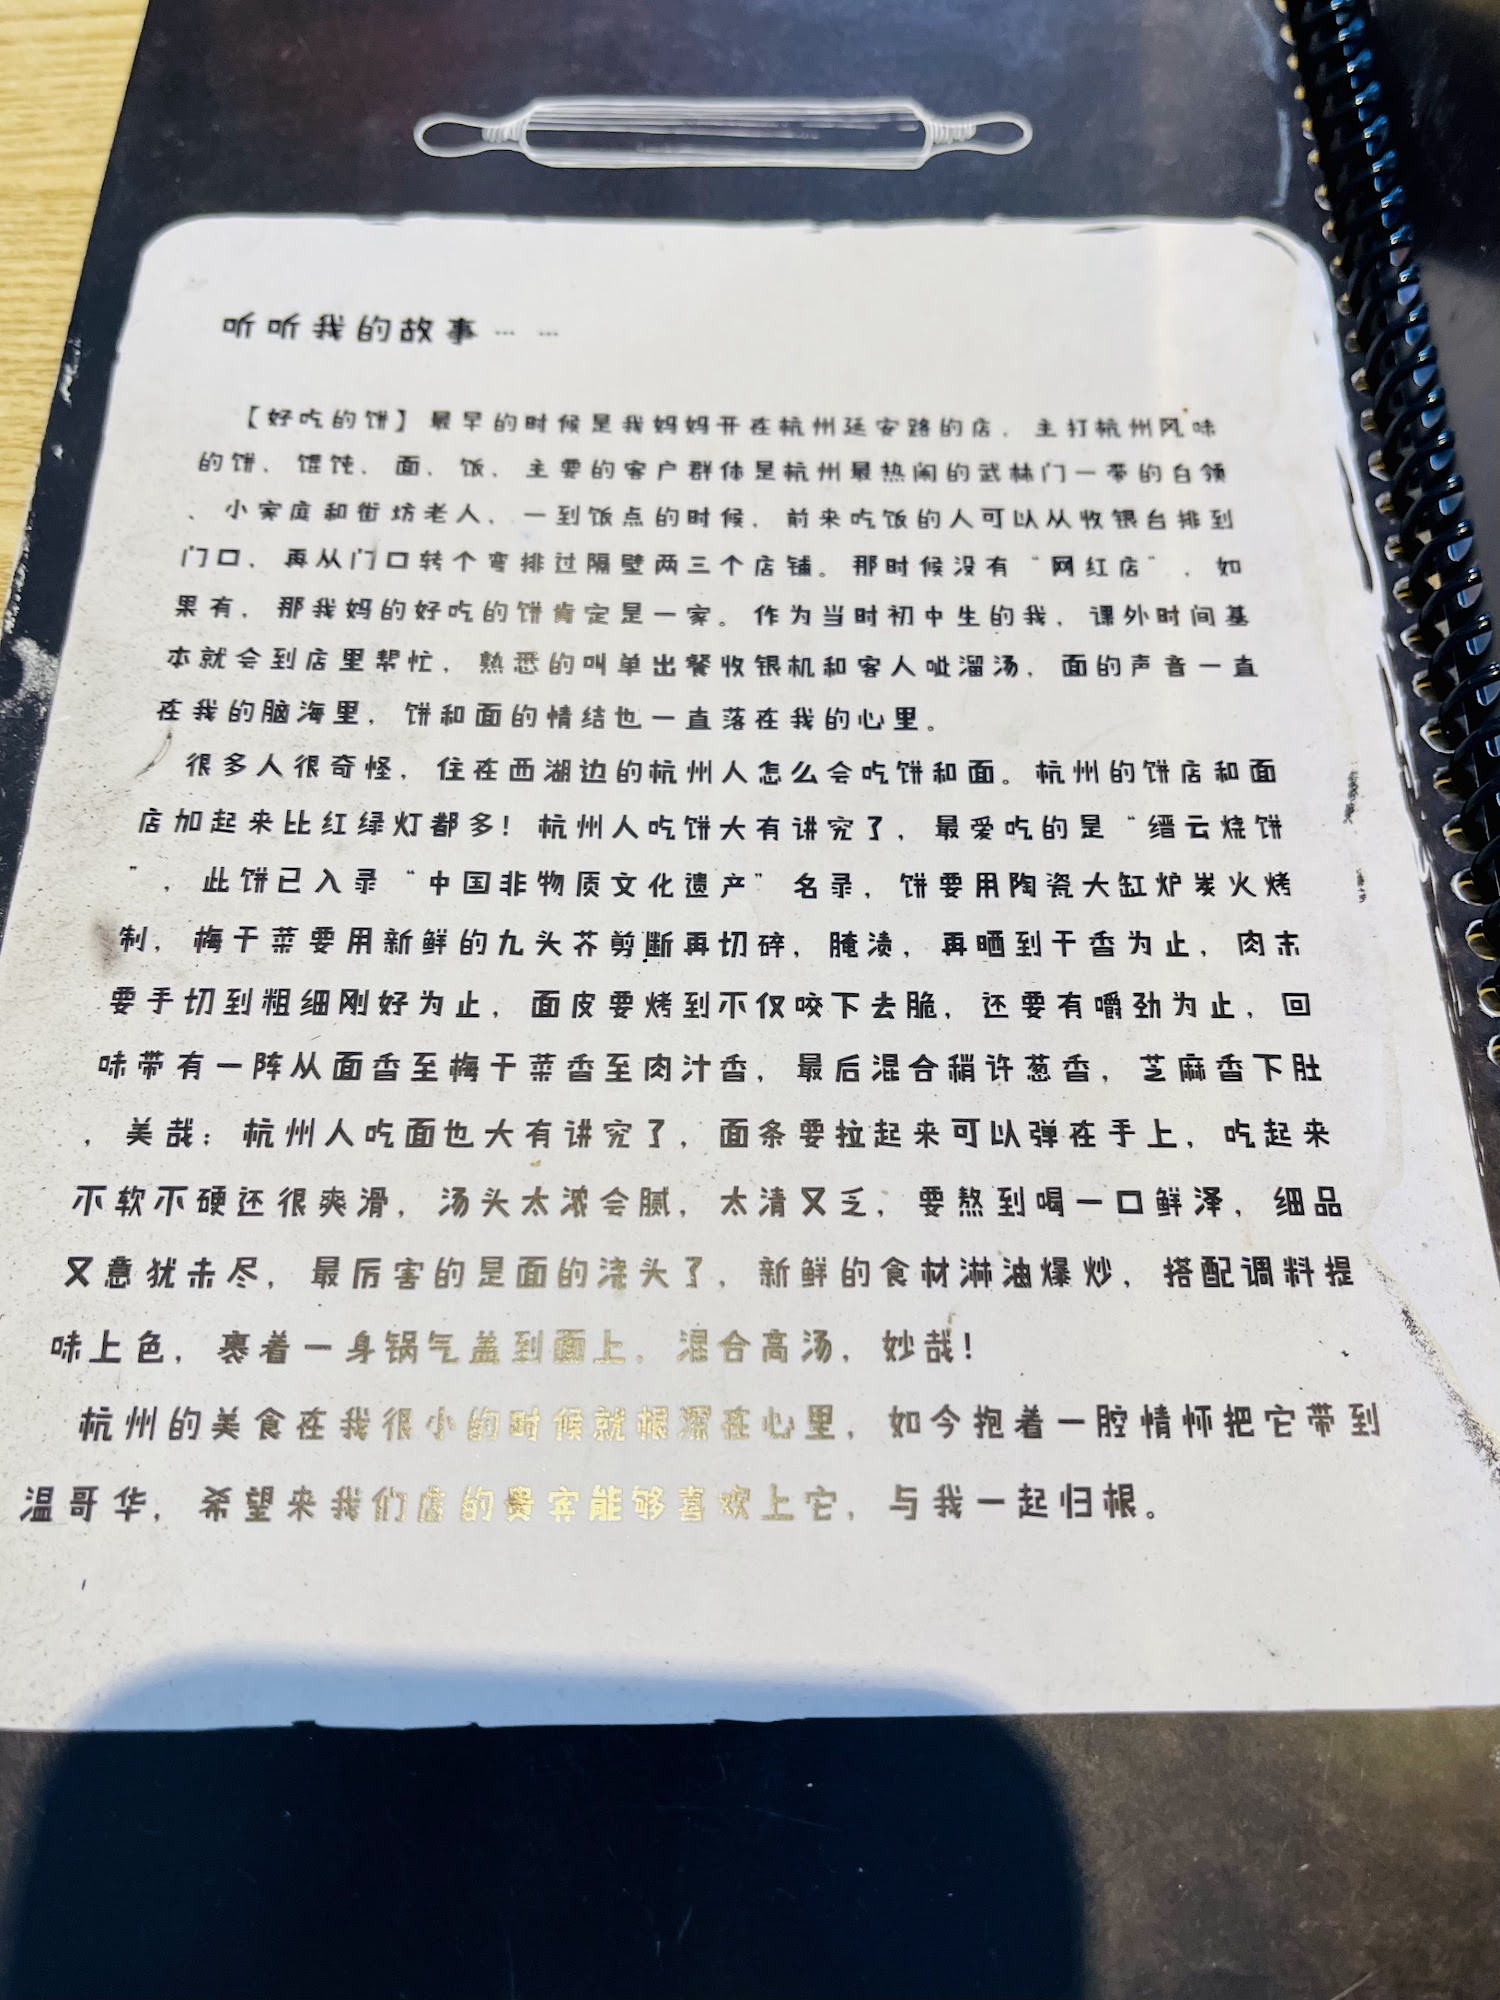 听听我的故事……
【好吃的饼】最早的时候是我妈妈开在杭州延安路的店，主打杭州风味
的饼、馄饨、面、饭，主要的客户群体是杭州最热闹的武林门一带的白领
、小家庭和街坊老人，一到饭点的时候，前来吃饭的人可以从收银台排到
门口，再从门口转个弯排过隔壁两三个店铺。那时候没有“网红店”，如
果有，那我妈的好吃的饼肯定是一家。作为当时初中生的我，课外时间基
本就会到店里帮忙，熟悉的叫单出餐收银机和客人呲溜汤，面的声音一直
在我的脑海里，饼和面的情结也一直落在我的心里。
很多人很奇怪，住在西湖边的杭州人怎么会吃饼和面。杭州的饼店和面
店加起来比红绿灯都多！杭州人吃饼大有讲究了，最爱吃的是“缙云烧饼
”，此饼已入录“中国非物质文化遗产”名录，饼要用陶瓷大缸炉炭火烤
制，梅干菜要用新鲜的九头芥剪断再切碎，腌渍，再晒到干香为止，肉末
要手切到粗细刚好为止，面皮要烤到不仅咬下去脆，还要有嚼劲为止，回
味带有一阵从面香至梅干菜香至肉汁香，最后混合稍许葱香，芝麻香下肚
，美哉；杭州人吃面也大有讲究了，面条要拉起来可以弹在手上，吃起来
不软不硬还很爽滑，汤头太浓会腻，太清又乏，要熬到喝一口鲜泽，细品
又意犹未尽，最厉害的是面的浇头了，新鲜的食材淋油爆炒，搭配调料提
味上色，裹着一身锅气盖到面上，混合高汤，妙哉！
杭州的美食在我很小的时候就根深在心里，如今抱着一腔情怀把它带到
温哥华，希望来我们店的贵宾能够喜欢上它，与我一起归根。